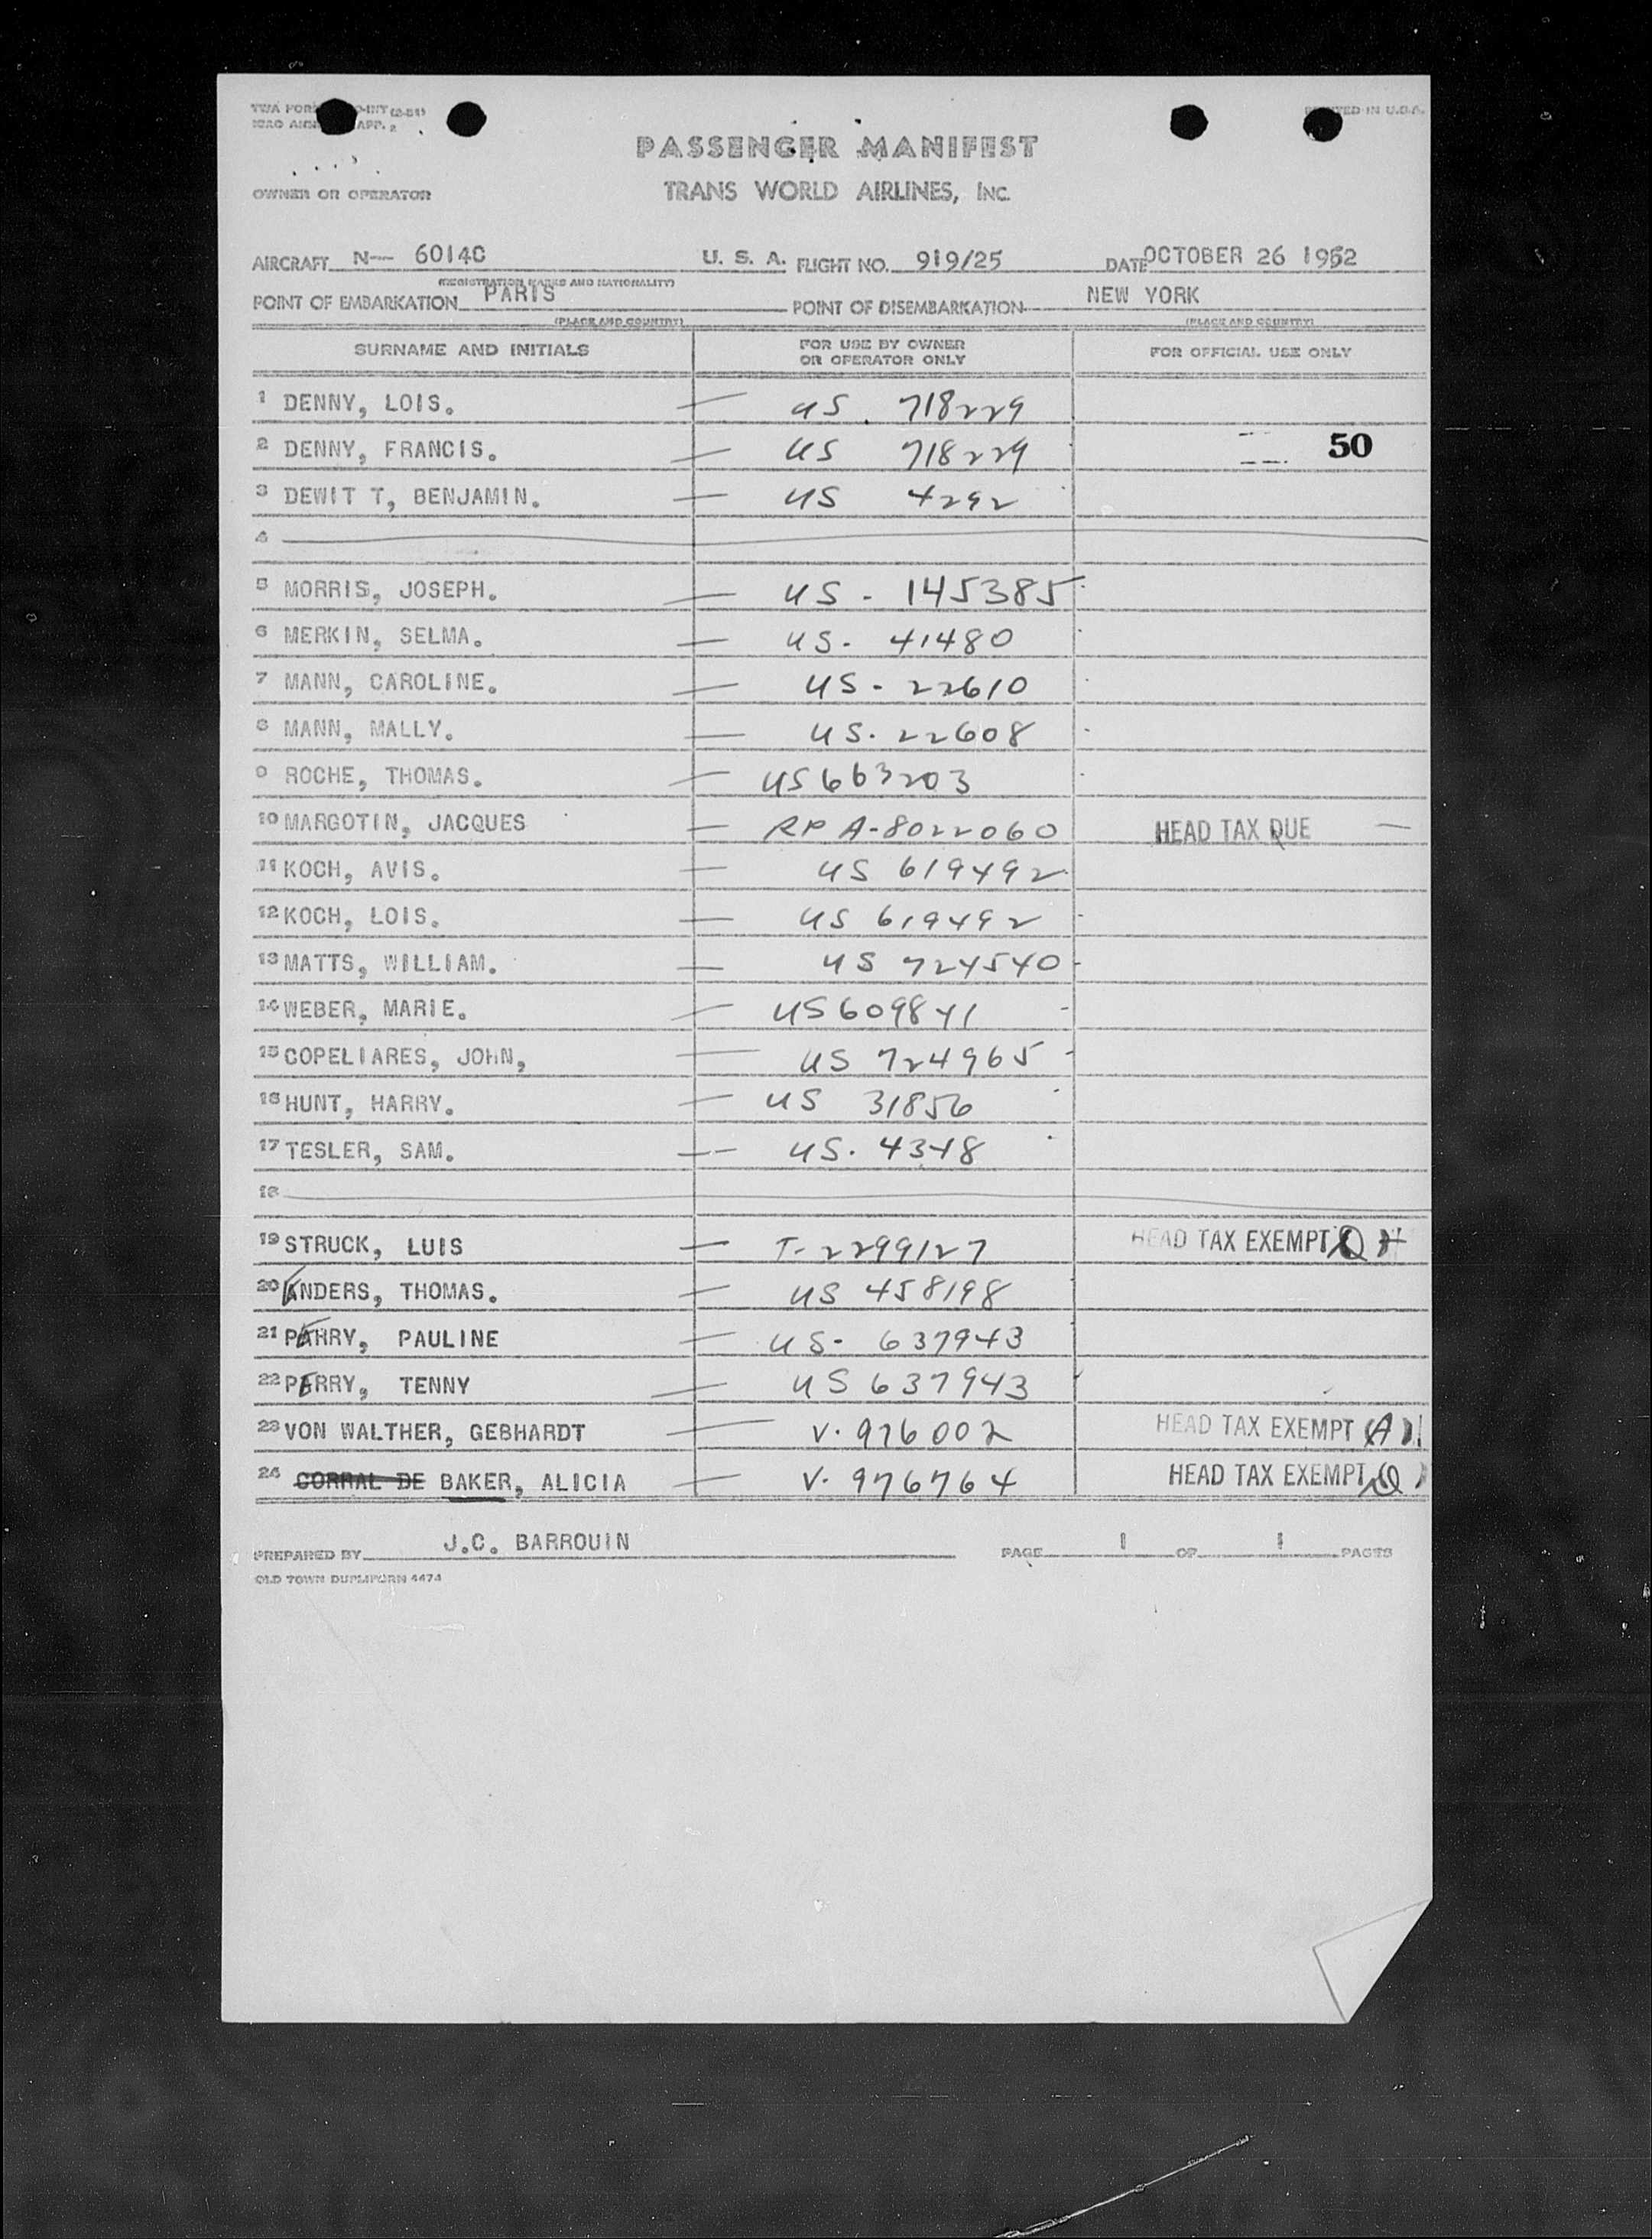 TWA FORM O-INT (2-51)
ICAO ANNEX APP. 2
PRINTED IN U.S.A.
PASSENGER MANIFEST
OWNER OR OPERATOR TRANS WORLD AIRLINES, INC.
AIRCRAFT N-- 6014C U. S. A. FLIGHT NO. 919/25 DATE OCTOBER 26 1952
(REGISTRATION MARKS AND NATIONALITY)
POINT OF EMBARKATION PARIS POINT OF DISEMBARKATION NEW YORK
(PLACE AND COUNTRY) (PLACE AND COUNTRY)
SURNAME AND INITIALS FOR USE BY OWNER OR OPERATOR ONLY FOR OFFICIAL USE ONLY
1 DENNY, LOIS. — US. 718229
2 DENNY, FRANCIS. — US 718229 50
3 DEWIT T, BENJAMIN. — US 4292
4
5 MORRIS, JOSEPH. — US - 145385
6 MERKIN, SELMA. — US- 41480
7 MANN, CAROLINE. — US - 22610
8 MANN, MALLY. — US. 22608
9 ROCHE, THOMAS. — US 663203
10 MARGOTIN, JACQUES — RP A-8022060 HEAD TAX DUE —
11 KOCH, AVIS. — US 619492
12 KOCH, LOIS. — US 619492
13 MATTS, WILLIAM. — US 724540
14 WEBER, MARIE. — US 609841
15 COPELIARES, JOHN, — US 724965
16 HUNT, HARRY. — US 31856
17 TESLER, SAM. — US. 4348
18
19 STRUCK, LUIS — T-2299127 HEAD TAX EXEMPT
20 ANDERS, THOMAS. — US 458198
21 PERRY, PAULINE — US- 637943
22 PERRY, TENNY — US 637943
23 VON WALTHER, GEBHARDT — V. 976002 HEAD TAX EXEMPT (A)
24 CORRAL DE BAKER, ALICIA — V. 976764 HEAD TAX EXEMPT
PREPARED BY J.C. BARROUIN PAGE 1 OF 1 PAGES
OLD TOWN DUPLIFORM 4474